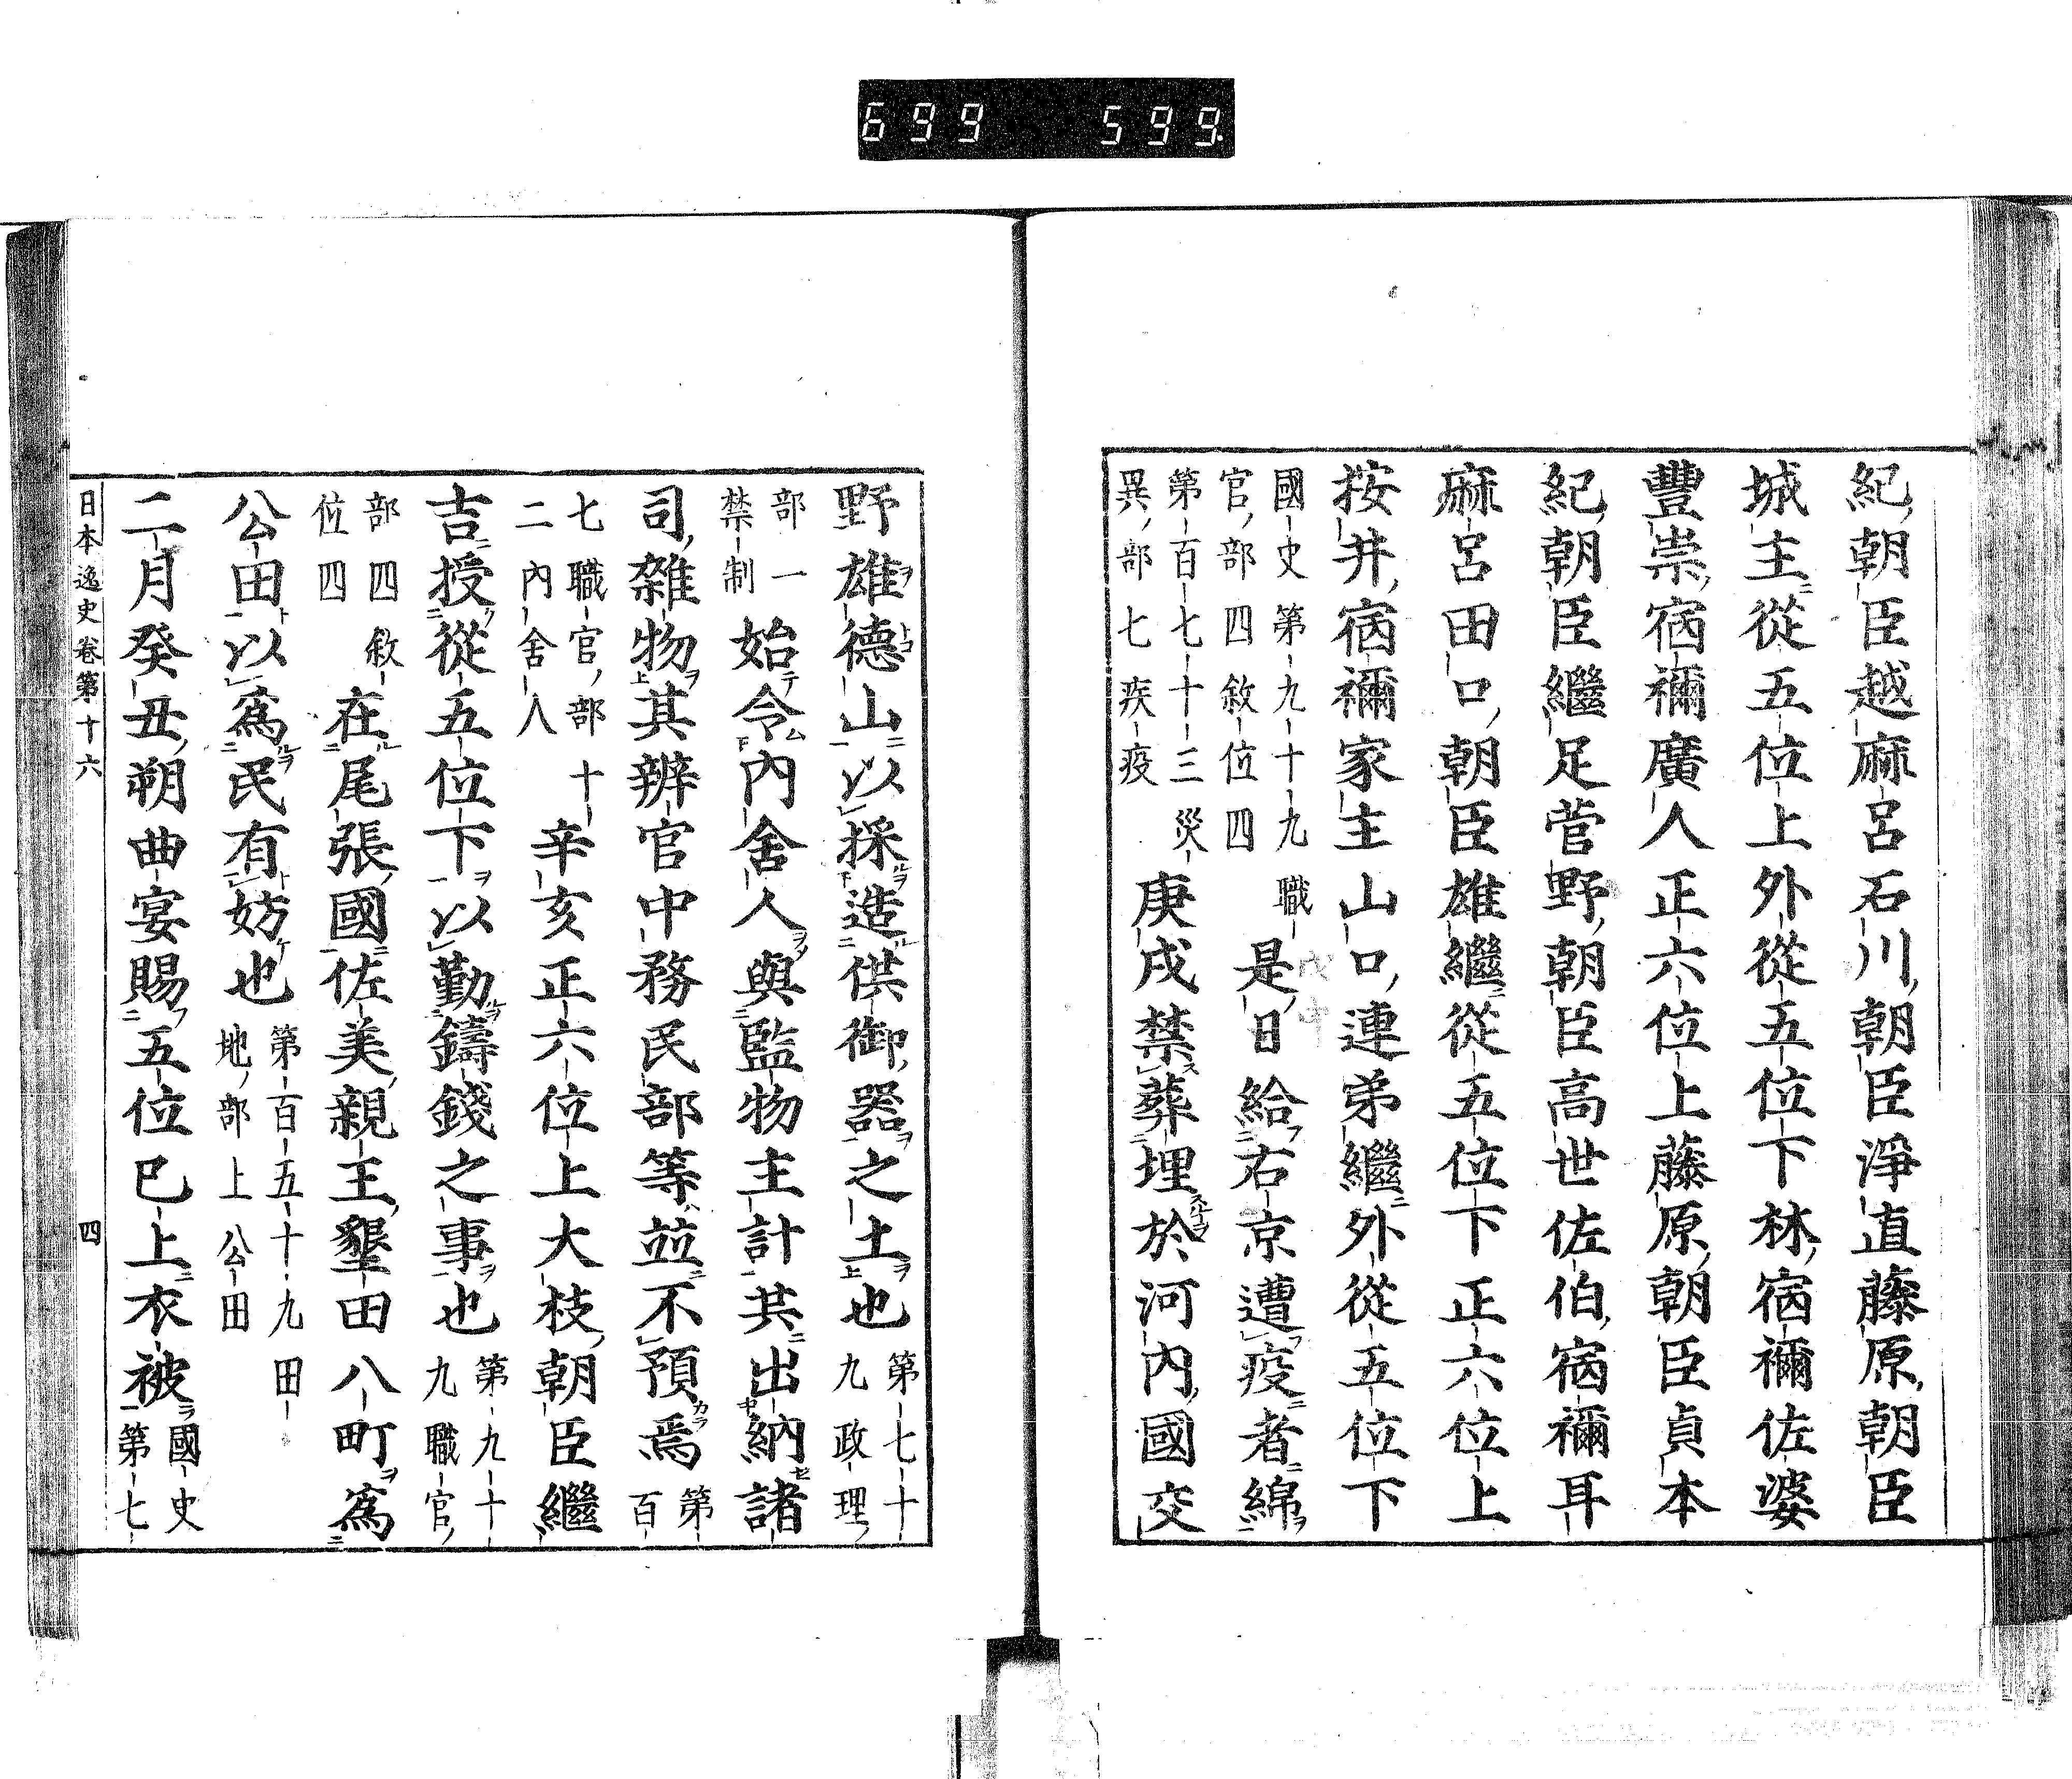 699 599.
紀朝臣越麻呂石川朝臣淨直藤原朝臣
城主從五位上外從五位下林宿禰佐婆
豐崇宿禰廣人正六位上藤原朝臣貞本
紀朝臣繼足菅野朝臣高世佐伯宿禰耳
麻呂田口朝臣雄繼從五位下正六位上
按井宿禰家主山口連弟繼外從五位下
國史第九十九職
官部四敘位四
是日給右京遭疫者綿
第百七十三災
異部七疾疫
庚戌禁葬埋於河内國交
野雄德山以採造供御器之土也
第七十
九政理
部一
禁制
始令内舍人與監物主計共出納諸
司雜物其辨官中務民部等並不預焉
第
百
七職官部十
二内舍人
辛亥正六位上大枝朝臣繼
吉授從五位下以勤鑄錢之事也
第九十
九職官
部四敘
位四
在尾張國佐美親王墾田八町爲
公田以爲民有妨也
第百五十九田
地部上公田
二月癸丑朔曲宴賜五位已上衣被
國史
第七
日本逸史卷第十六 四